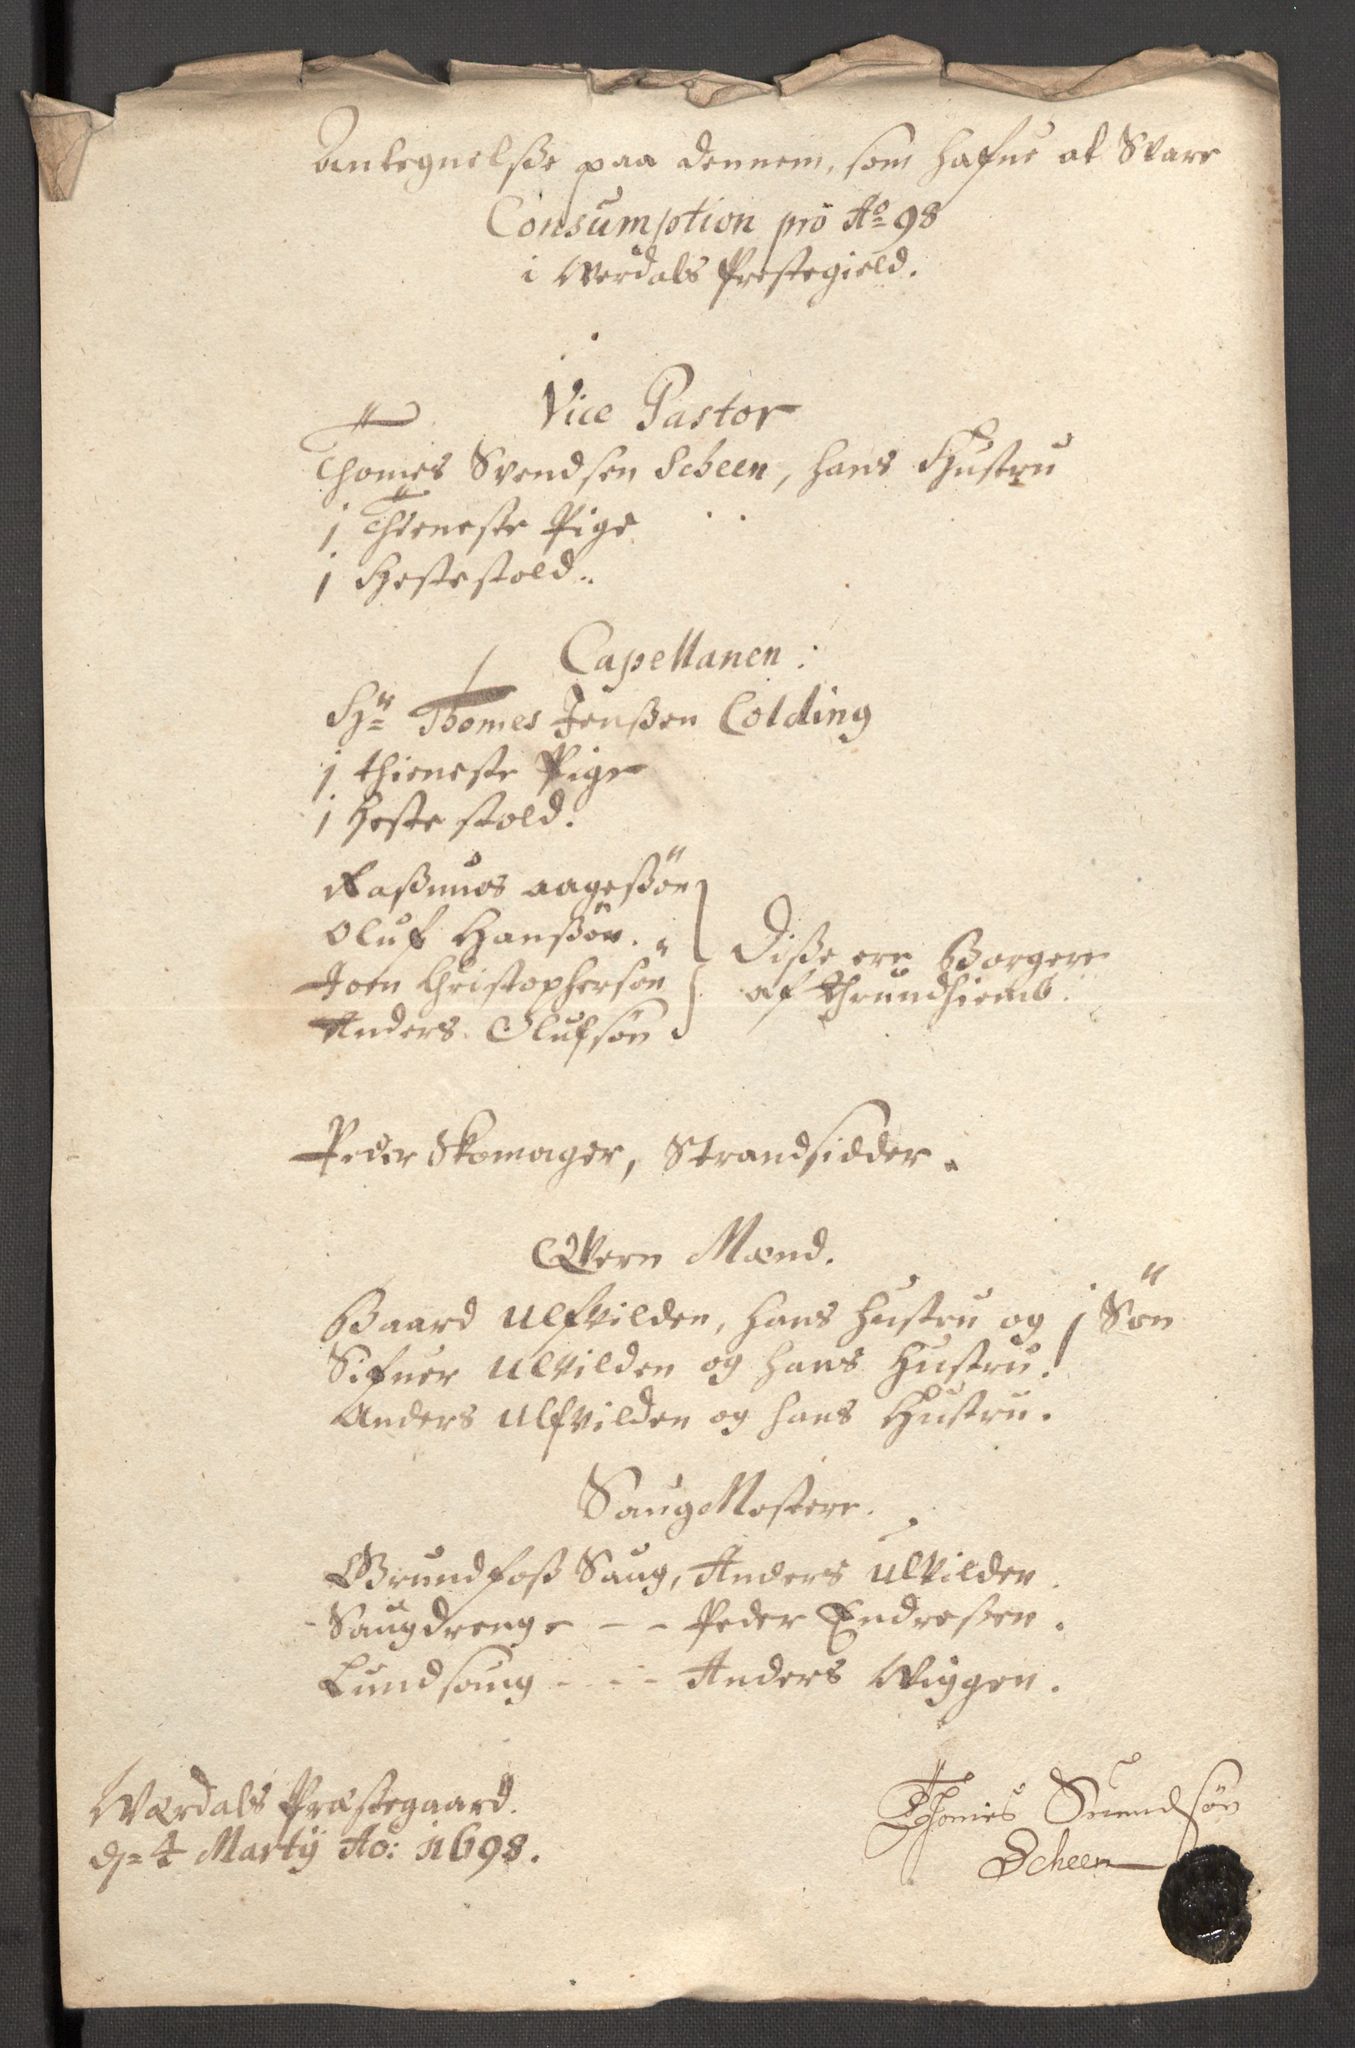 Antegnelsße paa dennem, som hafue at Svare
Consumption pro Ao 98
i Werdals Prestegield.
Vice Pastor
Thomes Svendsen Scheen, hans Hustru
1 Thieneste Pige
1 Hestestold..
Capellanen:
Hr Thomes Jenßen Colding
1 thieneste Pige
1 Heste stold.
Raßmus aagesßön
Oluf Hansßön.
Joen Christophersön
Anders Olufsøn
Disße ere Borgere
af Thrundhiemb.
Peder Skomager, Strandsidder.
Qvern Mænd.
Baard Ulfvilden, hans Hustru og 1 Sön
Sifuer Ulvilden og hans Hustru.
Anders Ulfvilden og hans Hustru.
Saug Mestere.
Grundfoß Saug, Anders Ulvilden.
Saugdrenge - - Peder Endresßen.
Lundsaug - - - Anders Wiggen.
Werdals Præstegaard.
d= 4 Martij Ao: 1698.
Thomes Suendsøn
Scheen